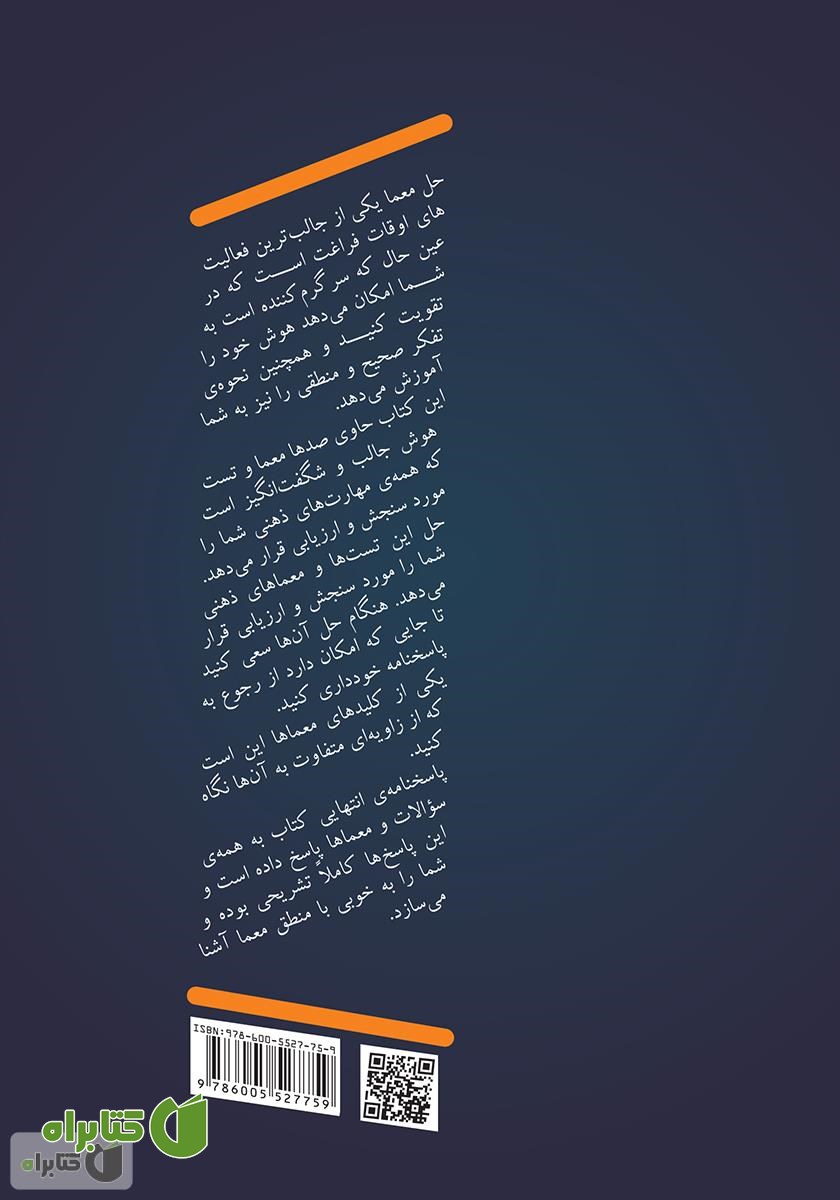 حل معما یکی از جالب‌ترین فعالیت
های اوقات فراغت است که در
عین حال که سر گرم کننده است به
شما امکان می‌دهد هوش خود را
تقویت کنید و همچنین نحوه‌ی
تفکر صحیح و منطقی را نیز به شما
آموزش می‌دهد.
این کتاب حاوی صدها معما و تست
هوش جالب و شگفت‌انگیز است
که همه‌ی مهارت‌های ذهنی شما را
مورد سنجش و ارزیابی قرار می‌دهد.
حل این تست‌ها و معماهای ذهنی
شما را مورد سنجش و ارزیابی قرار
می‌دهد. هنگام حل آن‌ها سعی کنید
تا جایی که امکان دارد از رجوع به
پاسخنامه خودداری کنید.
یکی از کلیدهای معماها این است
که از زاویه‌ای متفاوت به آن‌ها نگاه
کنید.
پاسخنامه‌ی انتهایی کتاب به همه‌ی
سؤالات و معماها پاسخ داده است و
این پاسخ‌ها کاملاً تشریحی بوده و
شما را به خوبی با منطق معما آشنا
می‌سازد.
ISBN:978-600-5527-75-9
9 786005 527759
کتابراه
کتابراه